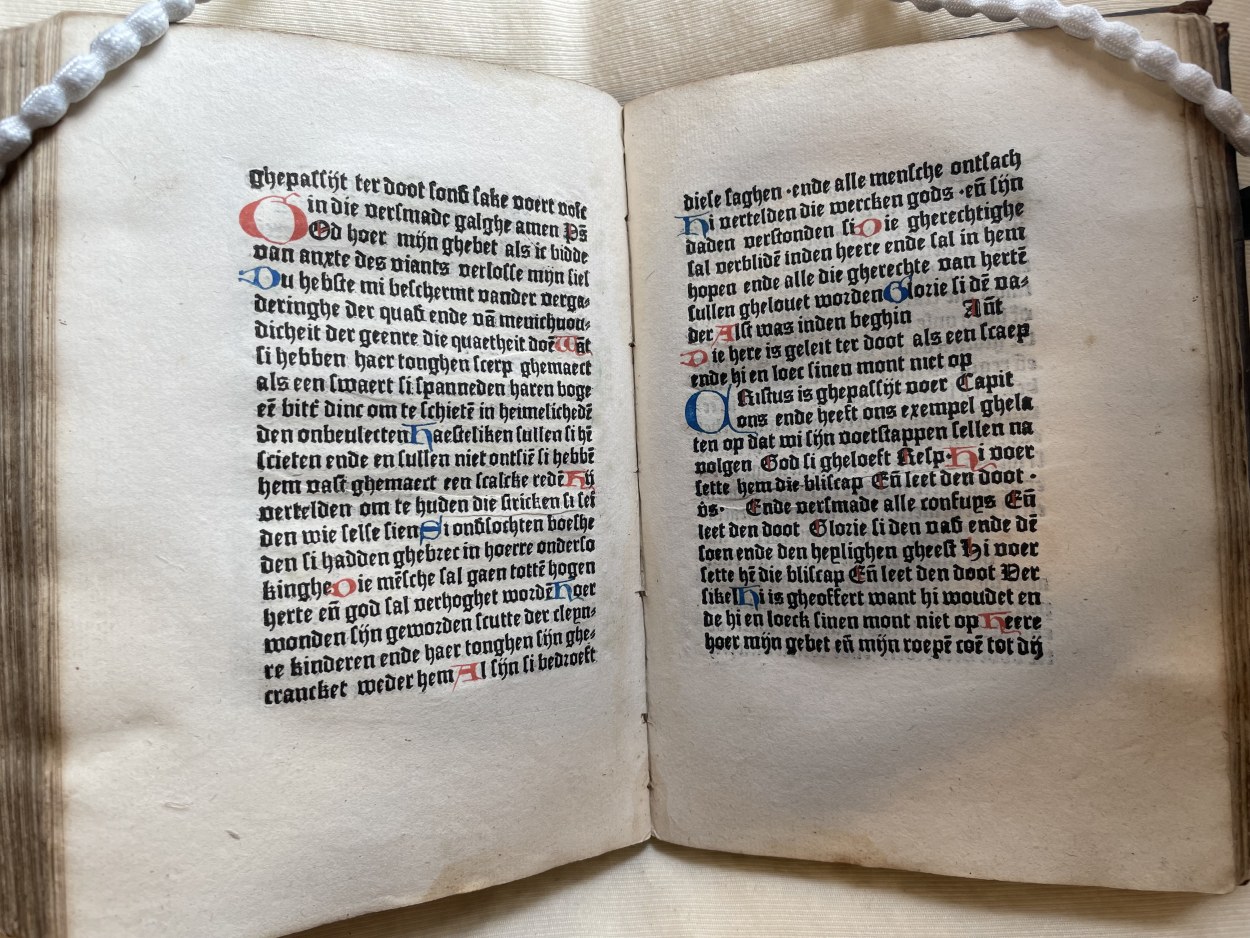 ghepassijt ter doot sonď sake voert volc
in die versmade galghe amen Ps̄
GOd hoer mijn ghebet als ic bidde
van anxte des viants verlosse mijn siel
Du hebste mi beschermt vander verga⸗
deringhe der quad ende vā menichuou⸗
dicheit der geenre die quaetheit doē Wāt
si hebben haer tonghen scerp ghemaect
als een swaert si spanneden haren boge
eē bitť dinc om te schietē in heimelichedē
den onbeulecten Haesteliken sullen si hē
scieten ende en sullen niet ontsiē si hebbē
hem vast ghemaect een scalcke redē Hij
vertelden om te huden die stricken si seď
den wie selse sien Si ondsochten boeshe
den si hadden ghebrec in hoerre onderso
kinghe Die mēsche sal gaen tottē hogen
herte eñ god sal verhoghet wordē Hoer
wonden sijn geworden scutte der cleyn⸗
re kinderen ende haer tonghen sijn ghe⸗
crancket weder hem Al sijn si bedroeft
diese saghen ·ende alle mensche ontsach
Hi vertelden die wercken gods ·eñ sijn
daden verstonden si Die gherechtighe
sal verblidē inden heere ende sal in hem
hopen ende alle die gherechte van hertē
sullen ghelouet worden Glorie si dē va⸗
der Alst was inden beghin Añt
Die here is geleit ter doot als een scaep
ende hi en loec sinen mont niet op
CRistus is ghepassijt voer Capit
ons ende heeft ons exempel ghela
ten op dat wi sijn voetstappen sellen na
volgen God si gheloeft Resp· Hi voer
sette hem die bliscap Eñ leet den doot ·
v̄s· Ende versmade alle confuys Eñ
leet den doot Glorie si den vad ende dē
soen ende den heylighen gheest Hi voer
sette hē die bliscap Eñ leet den doot Ver
sikel Hi is gheoffert want hi woudet en
de hi en loeck sinen mont niet op Heere
hoer mijn gebet eñ mijn roepē coē tot dij